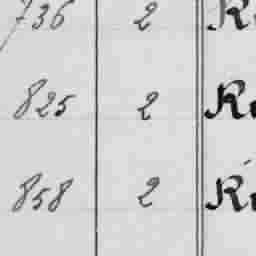 736 2
825 2
858 2